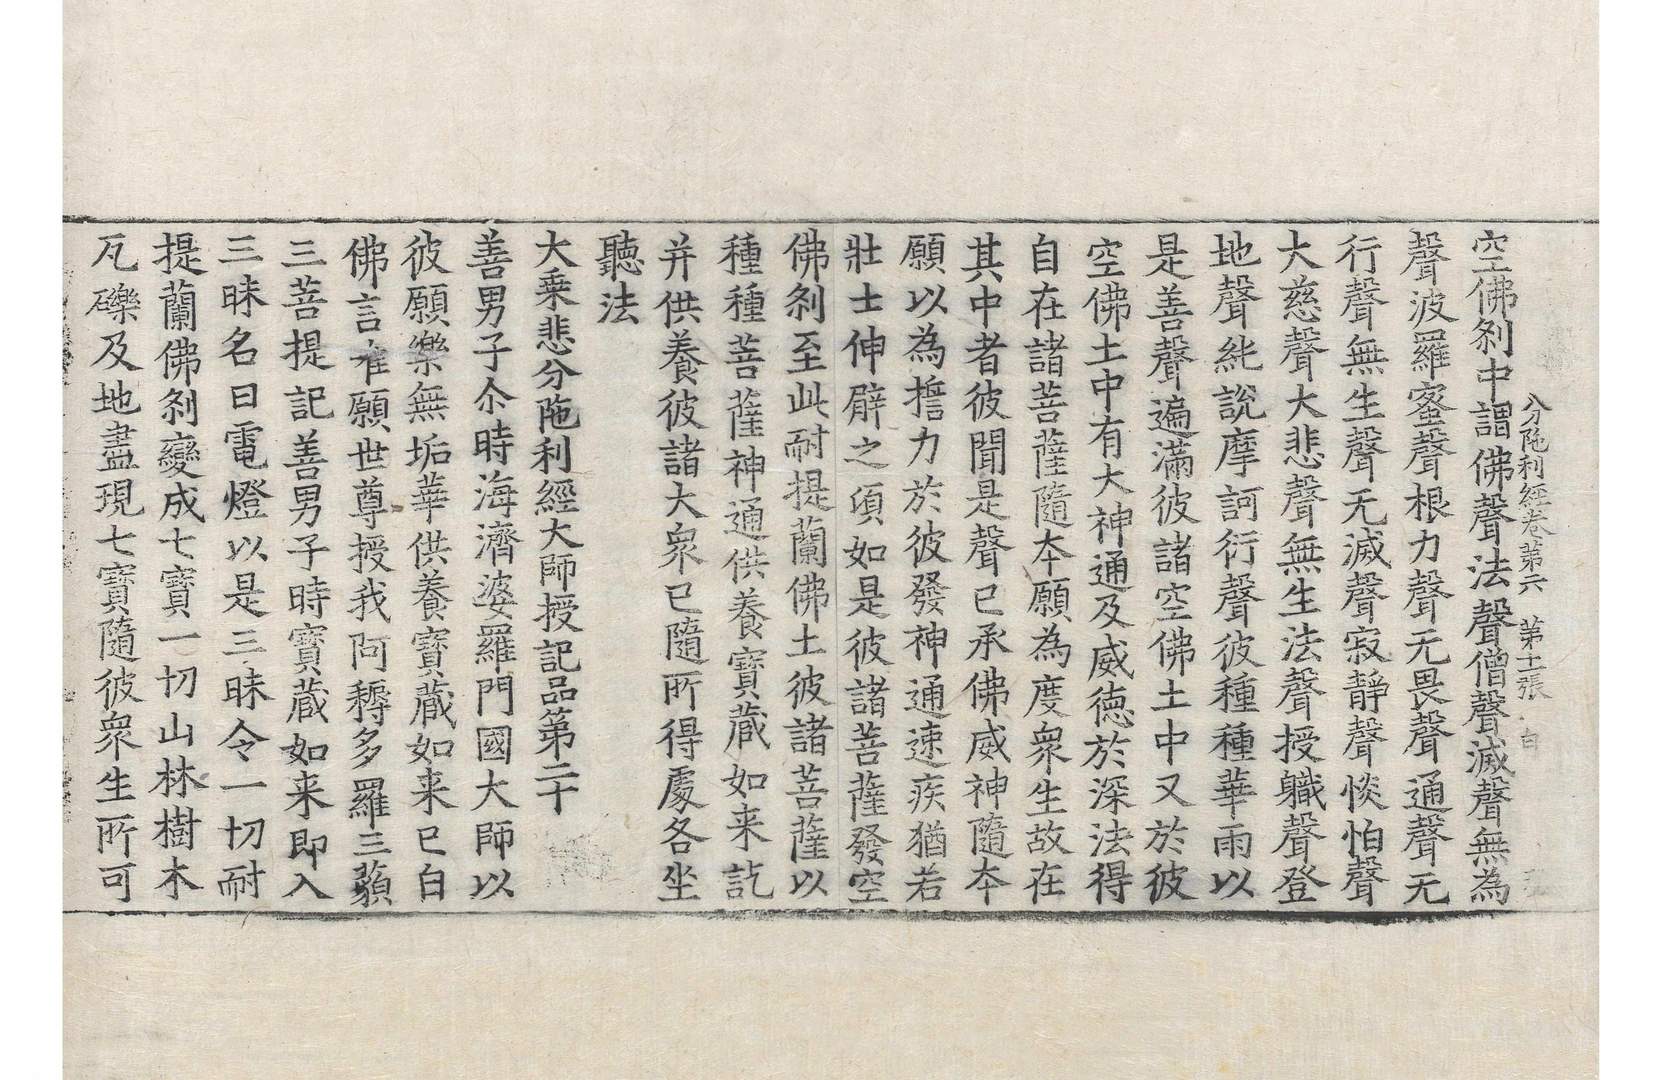 分陁利經卷第六 第十一張 白
空佛刹中謂佛聲法聲僧聲滅聲無為
聲波羅蜜聲根力聲无畏聲通聲无
行聲無生聲无滅聲寂靜聲惔怕聲
大慈聲大悲聲無生法聲授職聲登
地聲純說摩訶衍聲彼種種華雨以
是善聲遍滿彼諸空佛土中又於彼
空佛土中有大神通及威德於深法得
自在諸菩薩隨夲願為度衆生故在
其中者彼聞是聲已承佛威神隨夲
願以為擔力於彼發神通速疾猶若
壯士伸臂之須如是彼諸菩薩發空
佛刹至此耐提蘭佛土彼諸菩薩以
種種菩薩神通供養寶藏如来訖
并供養彼諸大衆已隨所得處各坐
聽法
大乗悲分陁利經大師授記品第二十
善男子尒時海濟婆羅門國大師以
彼願樂無垢華供養寶藏如来已白
佛言唯願世尊授我阿耨多羅三藐
三菩提記善男子時寶藏如来即入
三昧名曰電燈以是三昧令一切耐
提蘭佛刹變成七寶一切山林樹木
瓦礫及地盡現七寶隨彼衆生所可